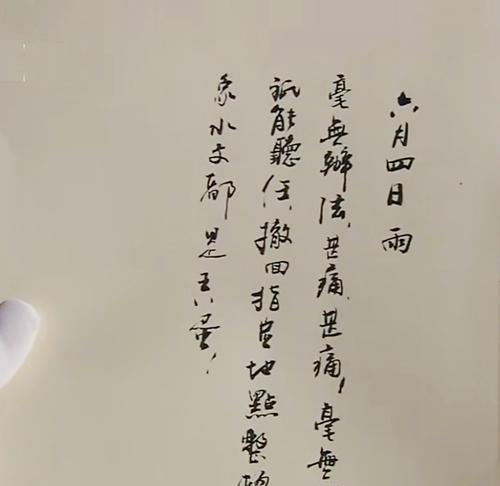 六月四日雨
毫無辦法,甚痛甚痛,毫無
祇能聽任,撤回指定地點整頓
氣水文部是真蛋,